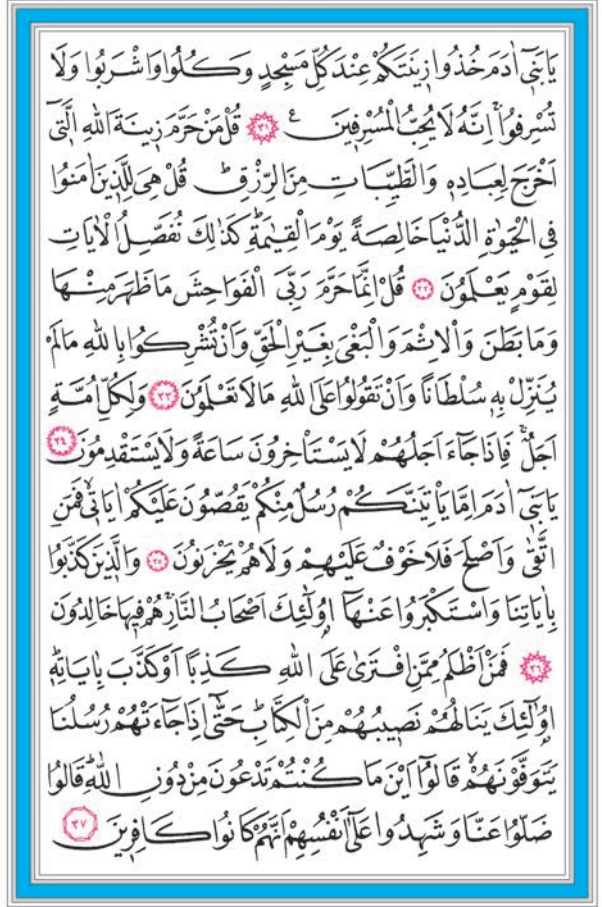 يَابَنٖٓي اٰدَمَ خُذُوا زٖينَتَكُمْ عِنْدَ كُلِّ مَسْجِدٍ وَكُلُوا وَاشْرَبُوا وَلَا
تُسْرِفُواۚ اِنَّهُ لَا يُحِبُّ الْمُسْرِفٖينَ ع ﴿٣١﴾ قُلْ مَنْ حَرَّمَ زٖينَةَ اللّٰهِ الَّتٖٓي
اَخْرَجَ لِعِبَادِهٖ وَالطَّيِّبَاتِ مِنَ الرِّزْقِؕ قُلْ هِيَ لِلَّذٖينَ اٰمَنُوا
فِي الْحَيٰوةِ الدُّنْيَا خَالِصَةً يَوْمَ الْقِيٰمَةِؕ كَذٰلِكَ نُفَصِّلُ الْاٰيَاتِ
لِقَوْمٍ يَعْلَمُونَ ﴿٣٢﴾ قُلْ اِنَّمَا حَرَّمَ رَبِّيَ الْفَوَاحِشَ مَا ظَهَرَ مِنْهَا
وَمَا بَطَنَ وَالْاِثْمَ وَالْبَغْيَ بِغَيْرِ الْحَقِّ وَاَنْ تُشْرِكُوا بِاللّٰهِ مَا لَمْ
يُنَزِّلْ بِهٖ سُلْطَانًا وَاَنْ تَقُولُوا عَلَى اللّٰهِ مَا لَا تَعْلَمُونَ ﴿٣٣﴾ وَلِكُلِّ اُمَّةٍ
اَجَلٌۚ فَاِذَا جَٓاءَ اَجَلُهُمْ لَا يَسْتَأْخِرُونَ سَاعَةً وَلَا يَسْتَقْدِمُونَ ﴿٣٤﴾
يَابَنٖٓي اٰدَمَ اِمَّا يَأْتِيَنَّكُمْ رُسُلٌ مِنْكُمْ يَقُصُّونَ عَلَيْكُمْ اٰيَاتٖيۙ فَمَنِ
اتَّقٰى وَاَصْلَحَ فَلَا خَوْفٌ عَلَيْهِمْ وَلَا هُمْ يَحْزَنُونَ ﴿٣٥﴾ وَالَّذٖينَ كَذَّبُوا
بِاٰيَاتِنَا وَاسْتَكْبَرُوا عَنْهَٓا اُو۬لٰٓئِكَ اَصْحَابُ النَّارِۚ هُمْ فٖيهَا خَالِدُونَ
﴿٣٦﴾ فَمَنْ اَظْلَمُ مِمَّنِ افْتَرٰى عَلَى اللّٰهِ كَذِبًا اَوْ كَذَّبَ بِاٰيَاتِهٖؕ
اُو۬لٰٓئِكَ يَنَالُهُمْ نَصٖيبُهُمْ مِنَ الْكِتَابِؕ حَتّٰٓى اِذَا جَٓاءَتْهُمْ رُسُلُنَا
يَتَوَفَّوْنَهُمْۙ قَالُٓوا اَيْنَ مَا كُنْتُمْ تَدْعُونَ مِنْ دُونِ اللّٰهِؕ قَالُوا
ضَلُّوا عَنَّا وَشَهِدُوا عَلٰٓى اَنْفُسِهِمْ اَنَّهُمْ كَانُوا كَافِرٖينَ ﴿٣٧﴾